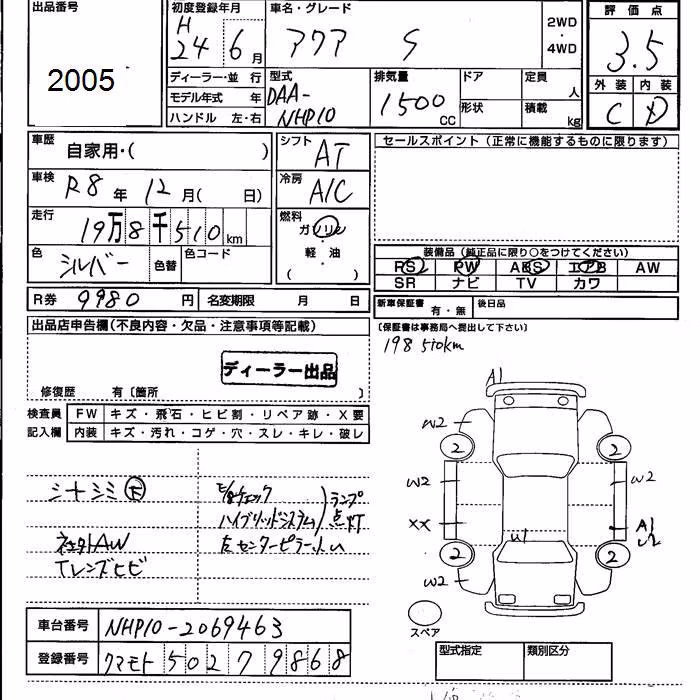 出品番号
2005
初度登録年月
H 24 6月
車名・グレード
アクア S
2WD・4WD
評価点
3.5
外装 内装
C D
ディーラー・並行
モデル年式 年
ハンドル 左・右
型式
DAA-
NHP10
排気量
1500 CC
ドア
形状
定員 人
積載 kg
車歴 自家用・( )
車検 R8年 12月( 日)
走行 19万8千510km
色 シルバー 色替 色コード
シフト AT
冷房 A/C
燃料
ガソリン
・
軽油
( ・ )
R券 9980円 名変期限 月 日
セールスポイント(正常に機能するものに限ります)
装備品(純正品に限り○をつけてください)
PS PW ABS エアB AW
SR ナビ TV カワ
新車保証書 有・無 後日品
〔保証書は事務局へ提出して下さい〕
198510km
出品店申告欄(不良内容・欠品・注意事項等記載)
ディーラー出品
修復歴 有〔箇所 〕
検査員 FW キズ・飛石・ヒビ割・リペア跡・X要
記入欄 内装 キズ・汚れ・コゲ・穴・スレ・キレ・破レ
シートシミ
チェック
ハイブリッドシステム
ランプ点灯
AW
左センターピラー
TレンズヒビA1
W2
2 2
W2 W2
XX A1
U2
U1
2 2
W2
スペア
車台番号 NHP10-2069463
登録番号 クマモト 502 ワ 9868
型式指定 類別区分